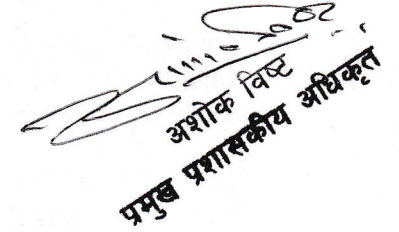 अशोक विष्ट
प्रमुख प्रशासकीय अधिकृत